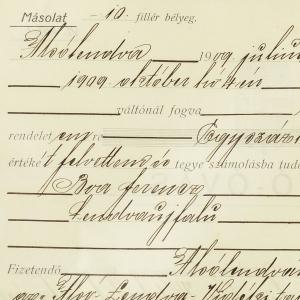 Másolat -10. fillér bélyeg.
Alsólendva 1909 julius
1909 október hó 4 én
váltónál fogva
rendelet emre Egyszáz
értéket felvettem és tegye számolásba tude
Bva Ferencz
Lendvaujfalu
Fizetendő Alsólendva
az Alsó-Lendva-Vidéki tak